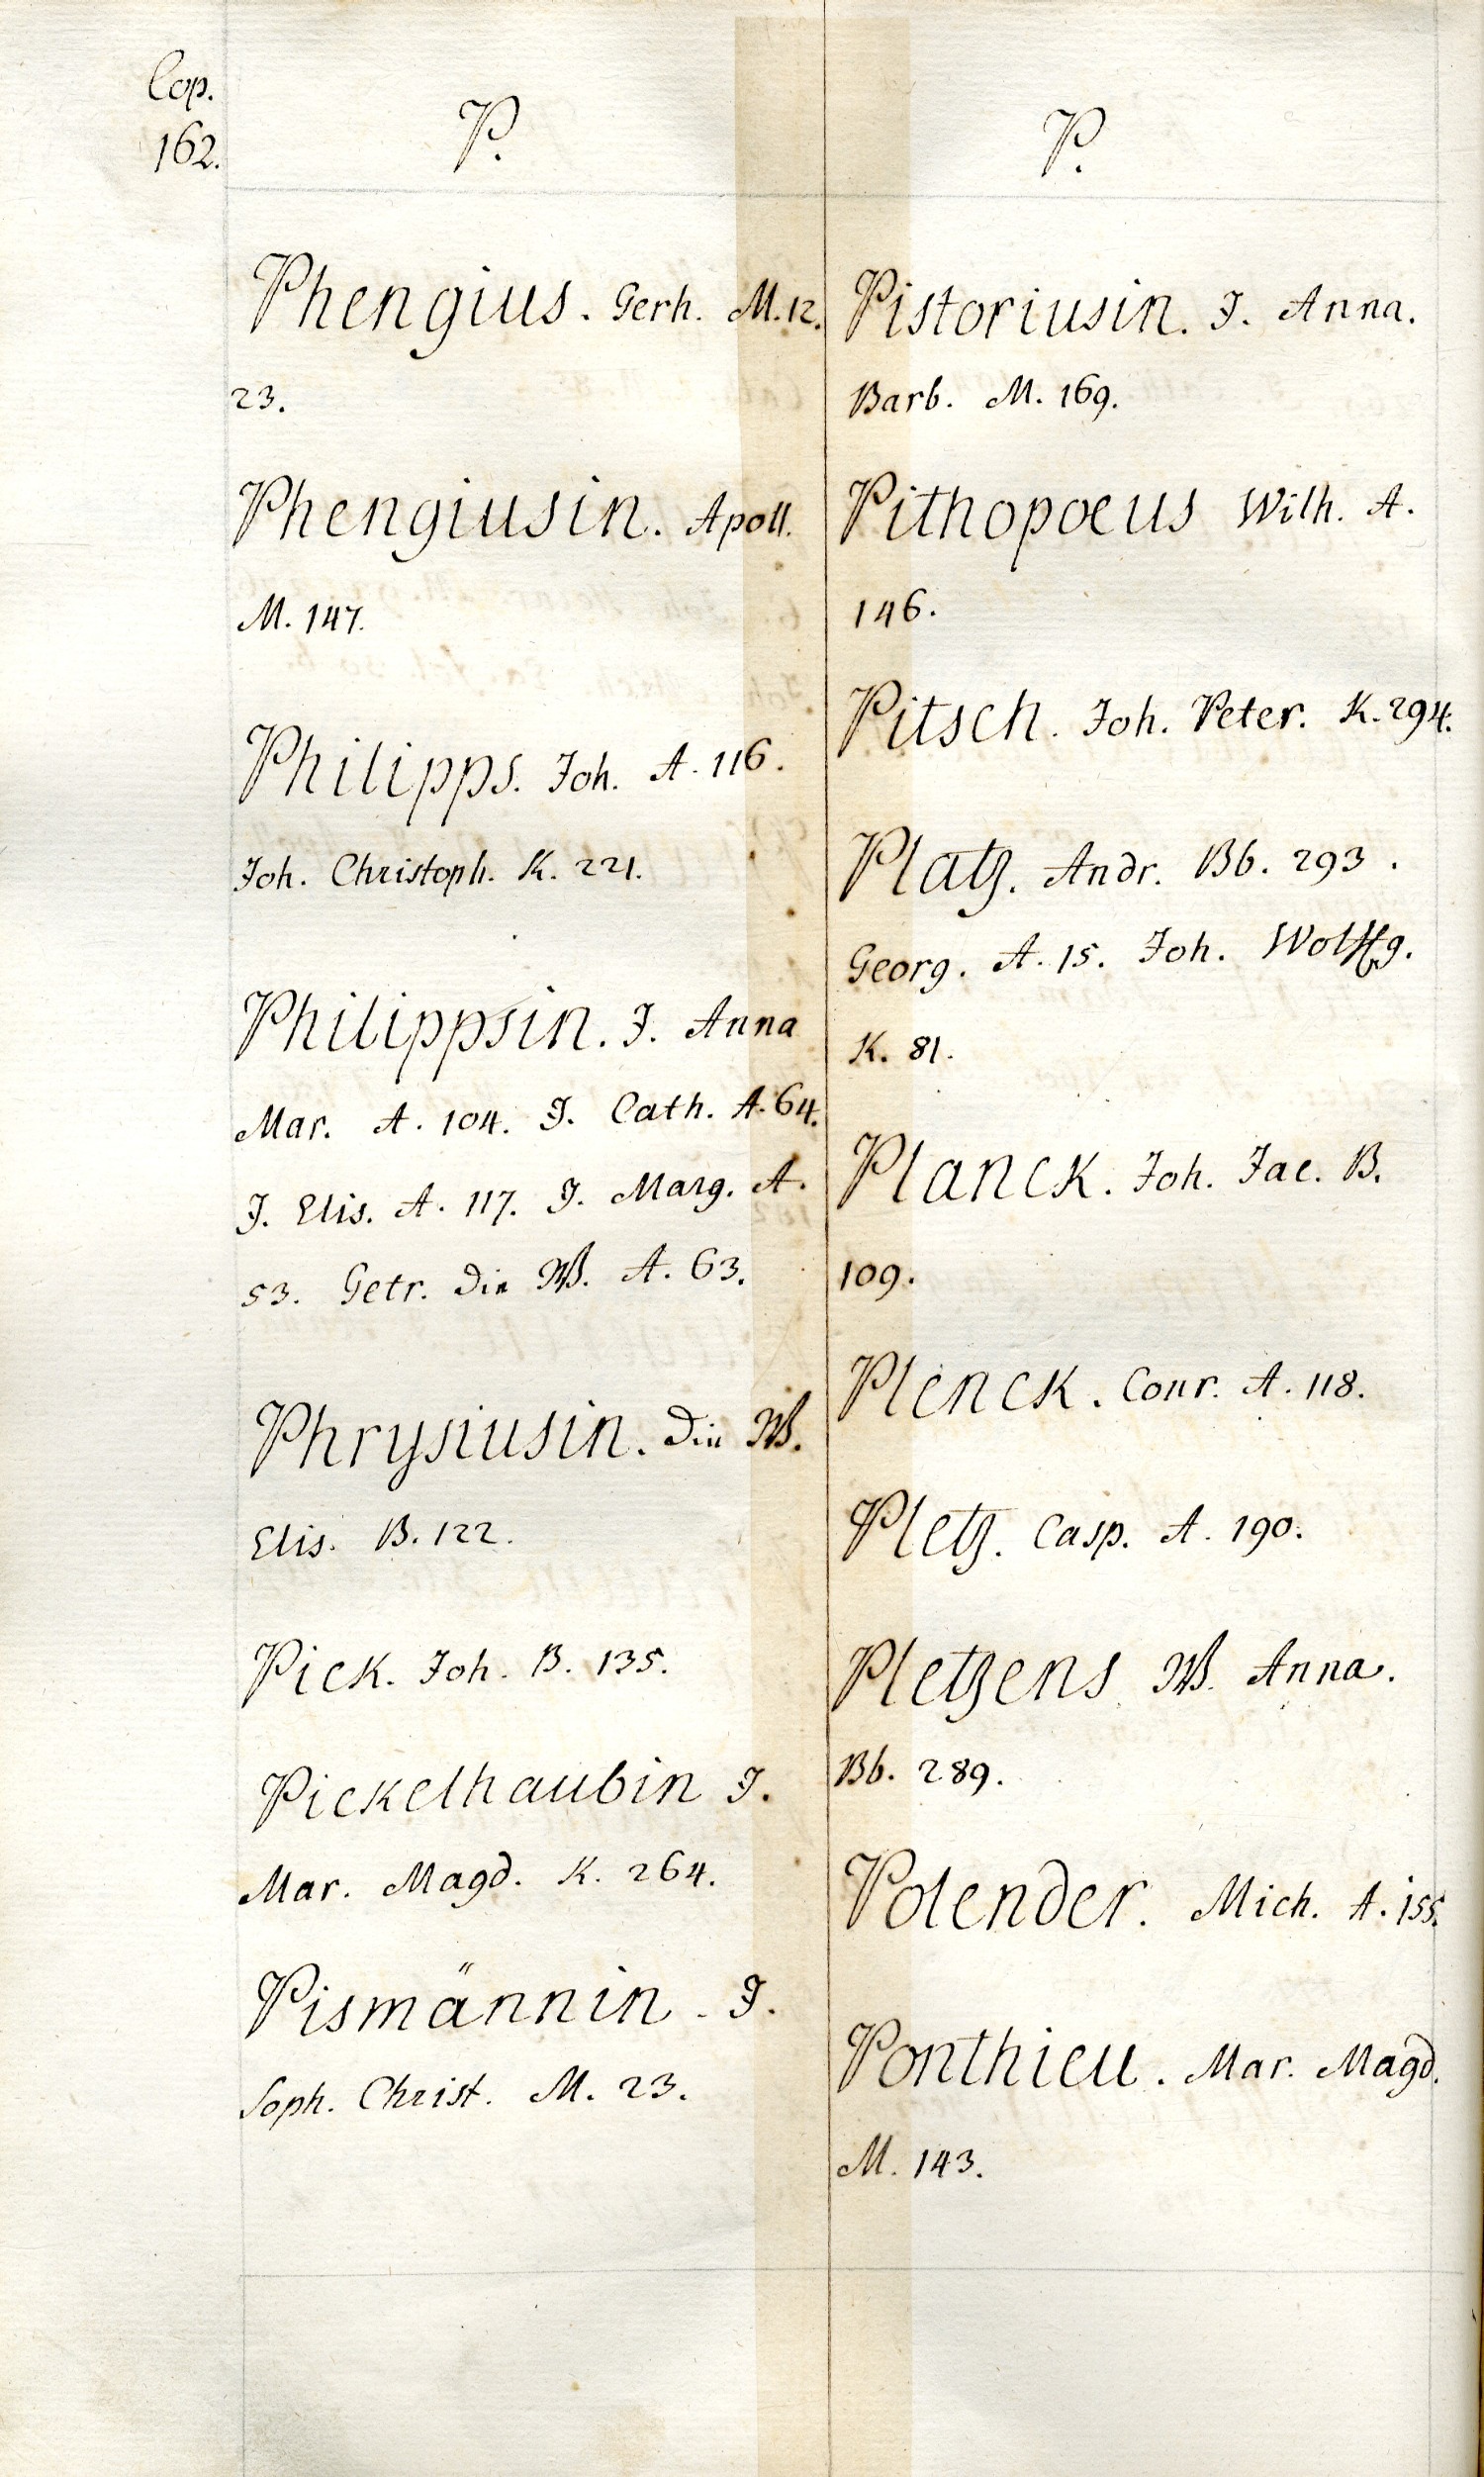 Cop.
162.
P.
Phengius. Gerh. M. 12.
23.
Phengiusin. Apoll.
M. 147.
Philipps. Joh. A. 116.
Joh. Christoph. K. 221.
Philippsin. J. Anna
Mar. A. 104. J. Cath. A. 64.
J. Elis. A. 117. J. Marg. A.
53. Getr. die W. A. 63.
Phrysiusin. die W.
Elis. B. 122.
Pick. Joh. B. 135.
Pickelhaubin J.
Mar. Magd. K. 264.
Pismännin. J.
Soph. Christ. M. 23.
P.
Pistoriusin. J. Anna.
Barb. M. 169.
Pithopoeus Wilh. A.
146.
Pitsch. Joh. Peter. K. 294.
Platz. Andr. Bb. 293.
Georg. A. 15. Joh. Wolffg.
K. 81.
Planck. Joh. Jac. B.
109.
Plenck. Conr. A. 118.
Pletz. Casp. A. 190.
Pletzens W. Anna.
Bb. 289.
Polender. Mich. A. 155.
Ponthieu. Mar. Magd.
M. 143.